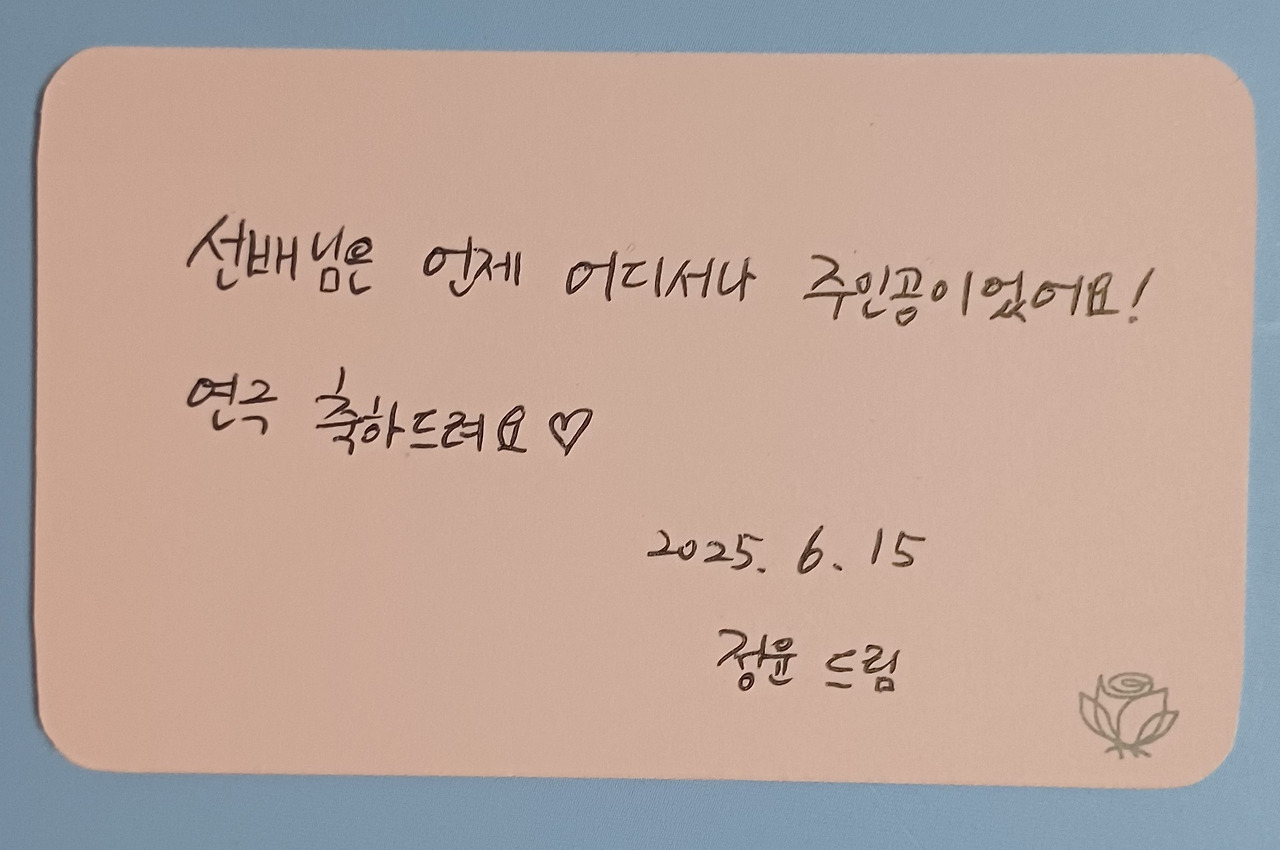 선배님은 언제 어디서나 주인공이었어요!
연극 축하드려요♡
2025. 6. 15
정윤 드림